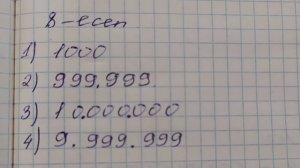 8-есеп
1) 1000
2) 999.999
3) 10.000.000
4) 9.999.999